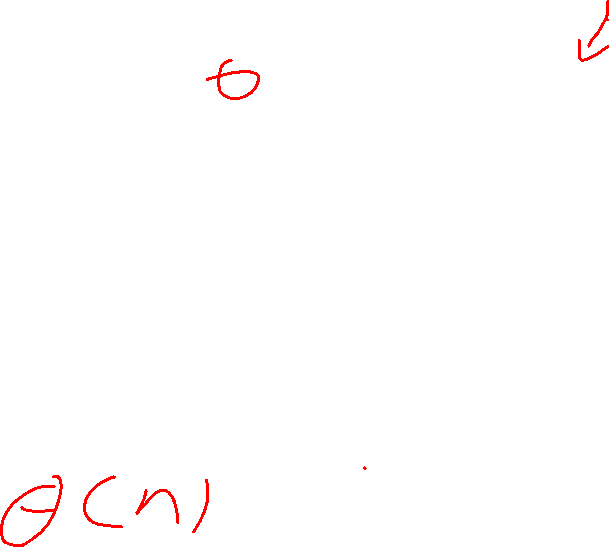 θ
θ(n)